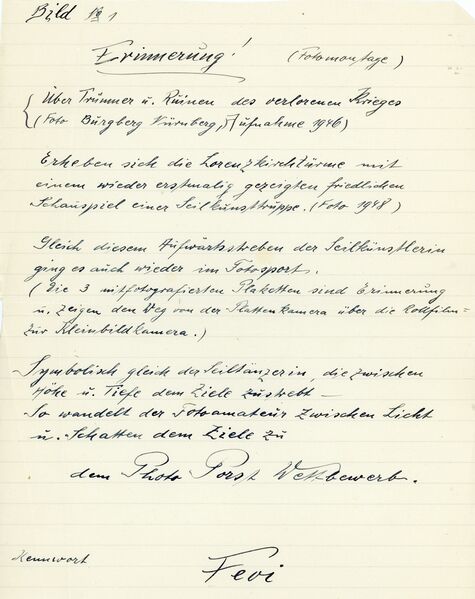 Bild № 1
Erinnerung! (Fotomontage)
Über Trümmer u. Ruinen des verlorenen Krieges
(Foto Burgberg Nürnberg, Aufnahme 1946)
Erheben sich die Lorenzkirchtürme mit
einem wieder erstmalig gezeigten friedlichen
Schauspiel einer Seilkünsttruppe. (Foto 1948)
Gleich diesem Aufwärtsstreben der Seilkünstlerin
ging es auch wieder im Fotosport.
(Die 3 mitfotografierten Plaketten sind Erinnerung
u. zeigen den Weg von der Plattenkamera über die Rollfilm-
zur Kleinbildkamera.)
Symbolisch gleich der Seiltänzerin, die zwischen
Höhe u. Tiefe dem Ziele zustrebt —
So wandelt der Fotoamateur zwischen Licht
u. Schatten dem Ziele zu
dem Photo Porst Wettbewerb.
Kennwort Fevi